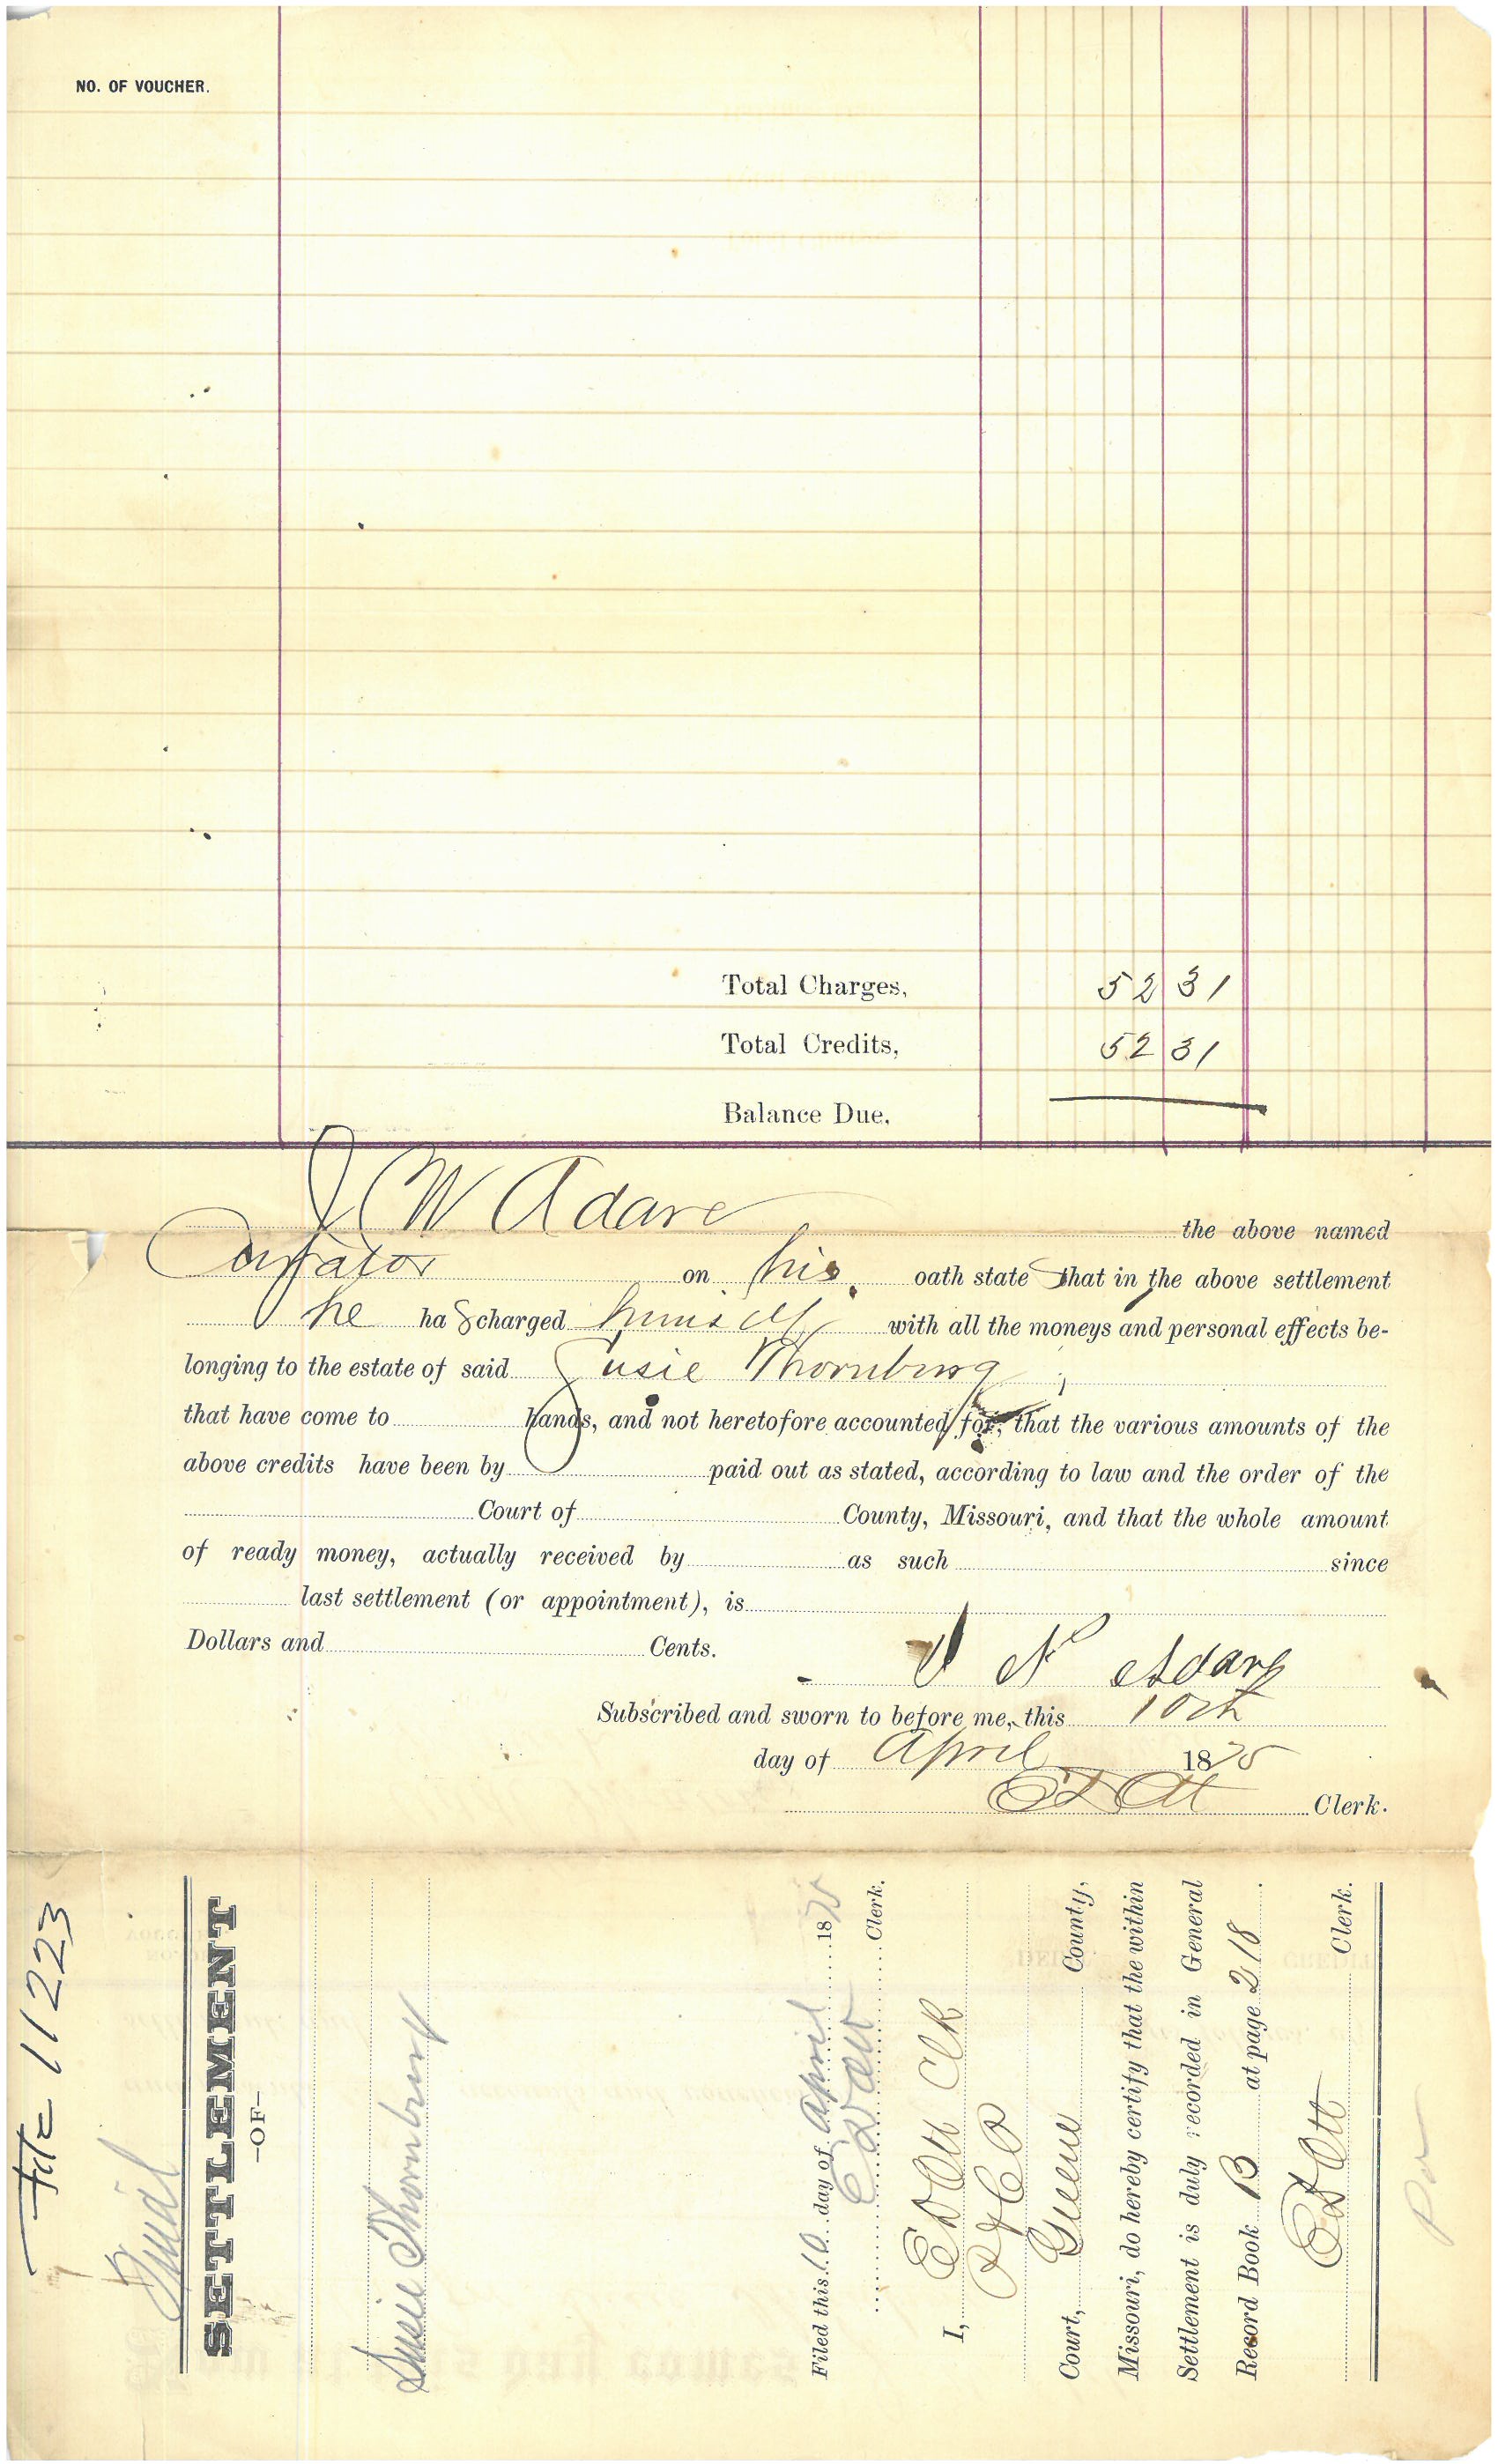 NO. OF VOUCHER.
Total Charges, 52 31
Total Credits, 52 31
Balance Due,
J W Adare the above named
Curator on his oath state that in the above settlement
he has charged himself with all the moneys and personal effects be-
longing to the estate of said Susie Thornburg
that have come to hands, and not heretofore accounted for; that the various amounts of the
above credits have been by paid out as stated, according to law and the order of the
Court of County, Missouri, and that the whole amount
of ready money, actually received by as such since
last settlement (or appointment), is
Dollars and Cents.
Adare
Subscribed and sworn to before me, this 10th
day of April 1875
E D Ott Clerk.
File 11223
Final
SETTLEMENT
—OF—
Susie Thornburg
Filed this 10 day of April 1875
E D Ott Clerk.
I, E D Ott Clk
Court, Greene County,
Missouri, do hereby certify that the within
Settlement is duly recorded in General
Record Book B at page 218.
E D Ott Clerk.